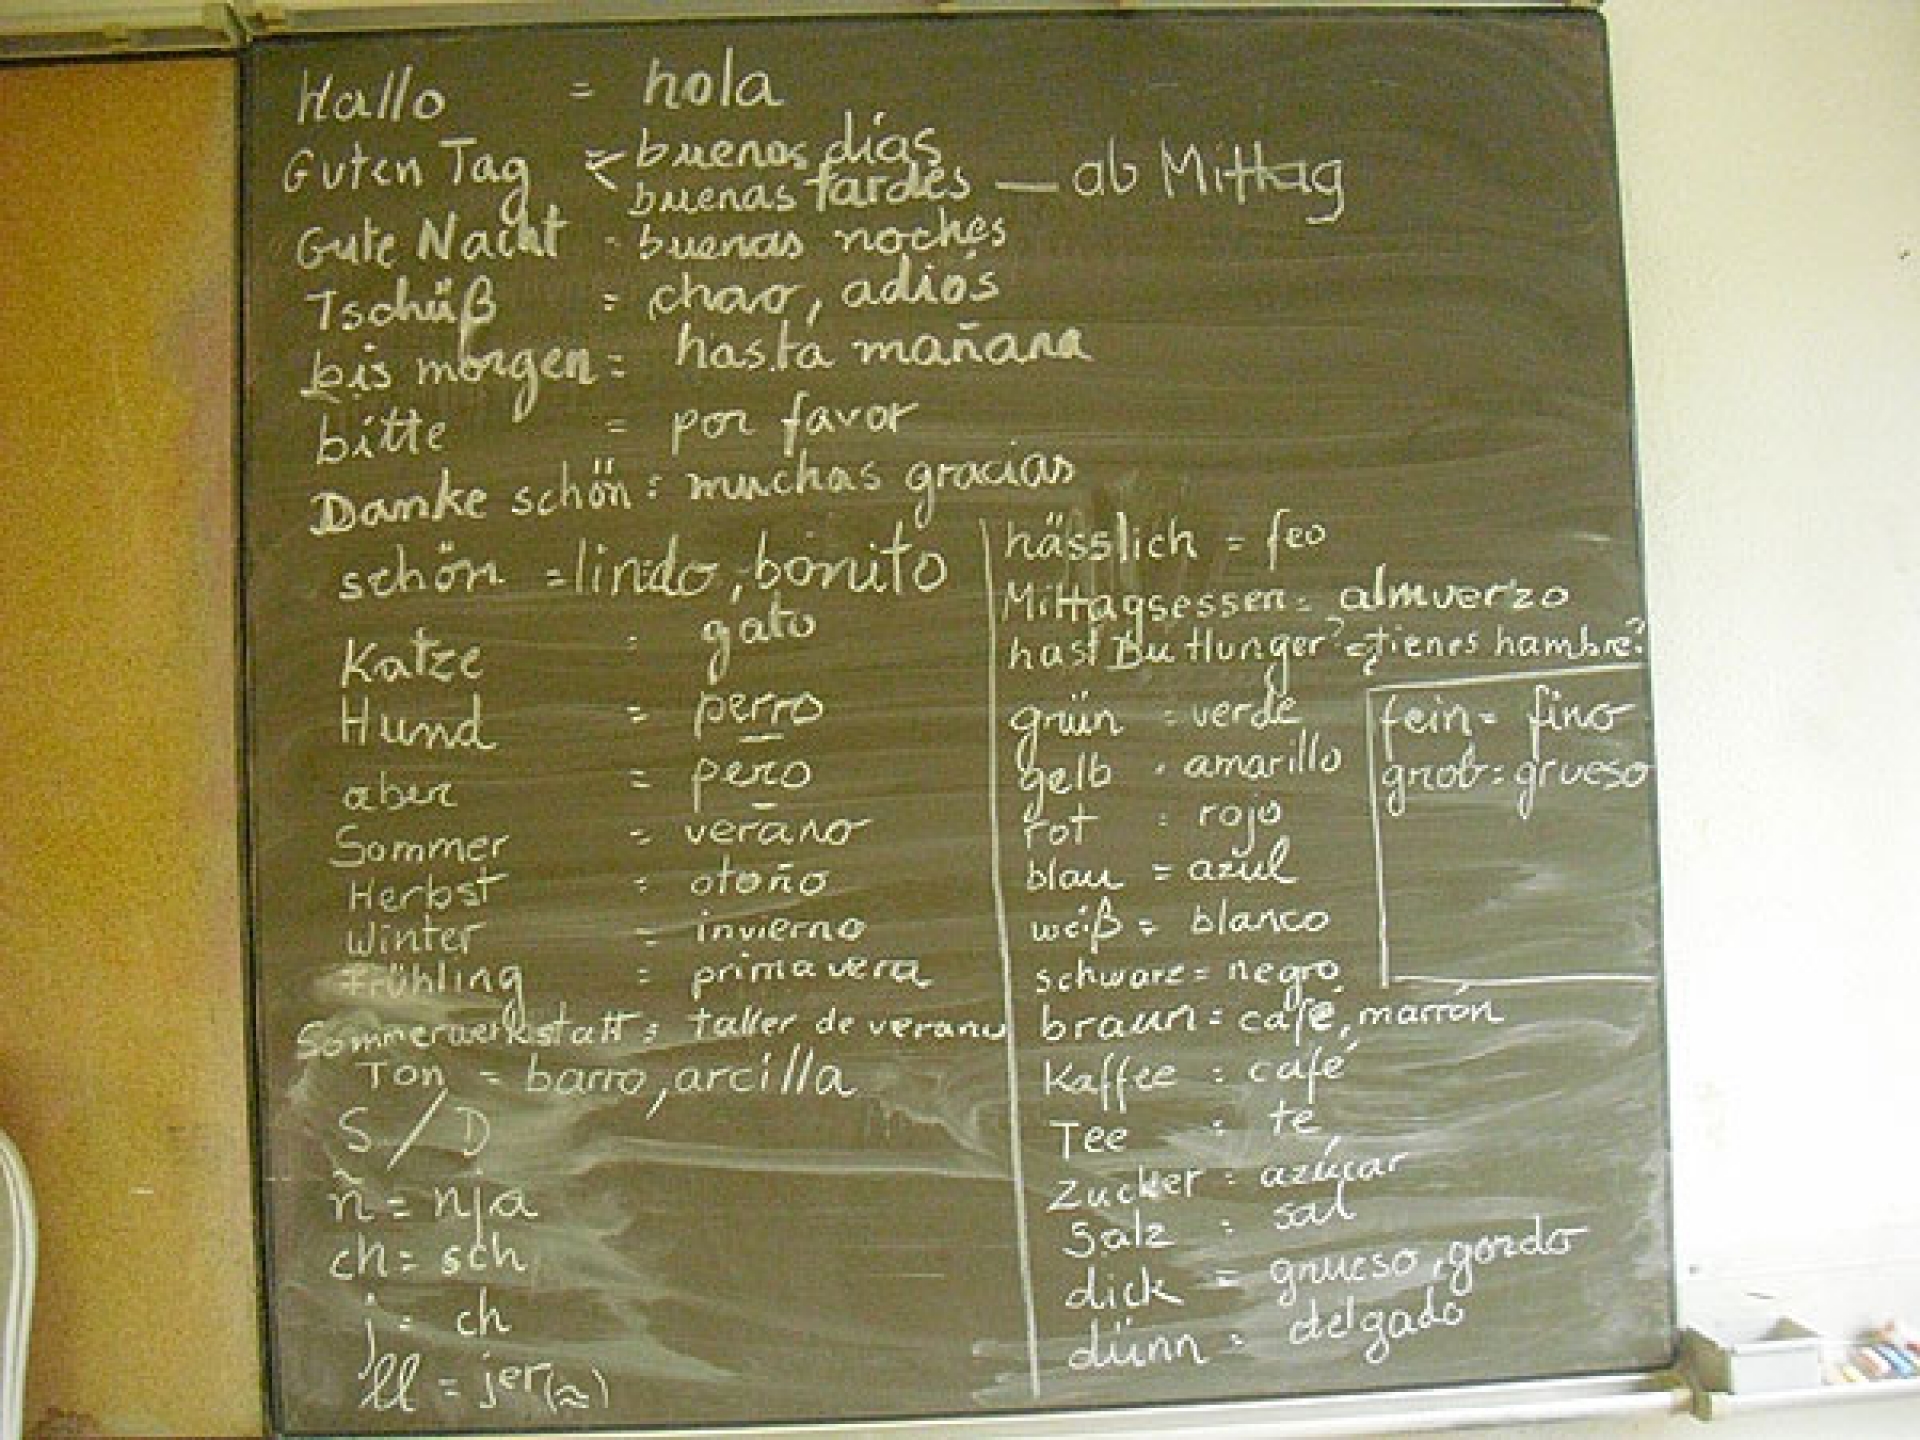 Hallo = hola
Guten Tag = buenos días
buenas tardes — ab Mittag
Gute Nacht = buenas noches
Tschüß = chao, adiós
bis morgen = hasta mañana
bitte = por favor
Danke schön = muchas gracias
schön = lindo, bonito
Katze = gato
Hund = perro
aber = pero
Sommer = verano
Herbst = otoño
Winter = invierno
Frühling = primavera
Sommerwerkstatt = taller de verano
Ton = barro, arcilla
S / D
ñ = nja
ch = sch
j = ch
ll = jer(≈)
hässlich = feo
Mittagsessen = almuerzo
hast Du Hunger? = ¿tienes hambre?
grün = verde
gelb = amarillo
rot = rojo
blau = azul
weiß = blanco
schwarz = negro
braun = café, marrón
Kaffee = café
Tee = te
Zucker = azúcar
Salz = sal
dick = grueso, gordo
dünn = delgado
fein = fino
grob = grueso